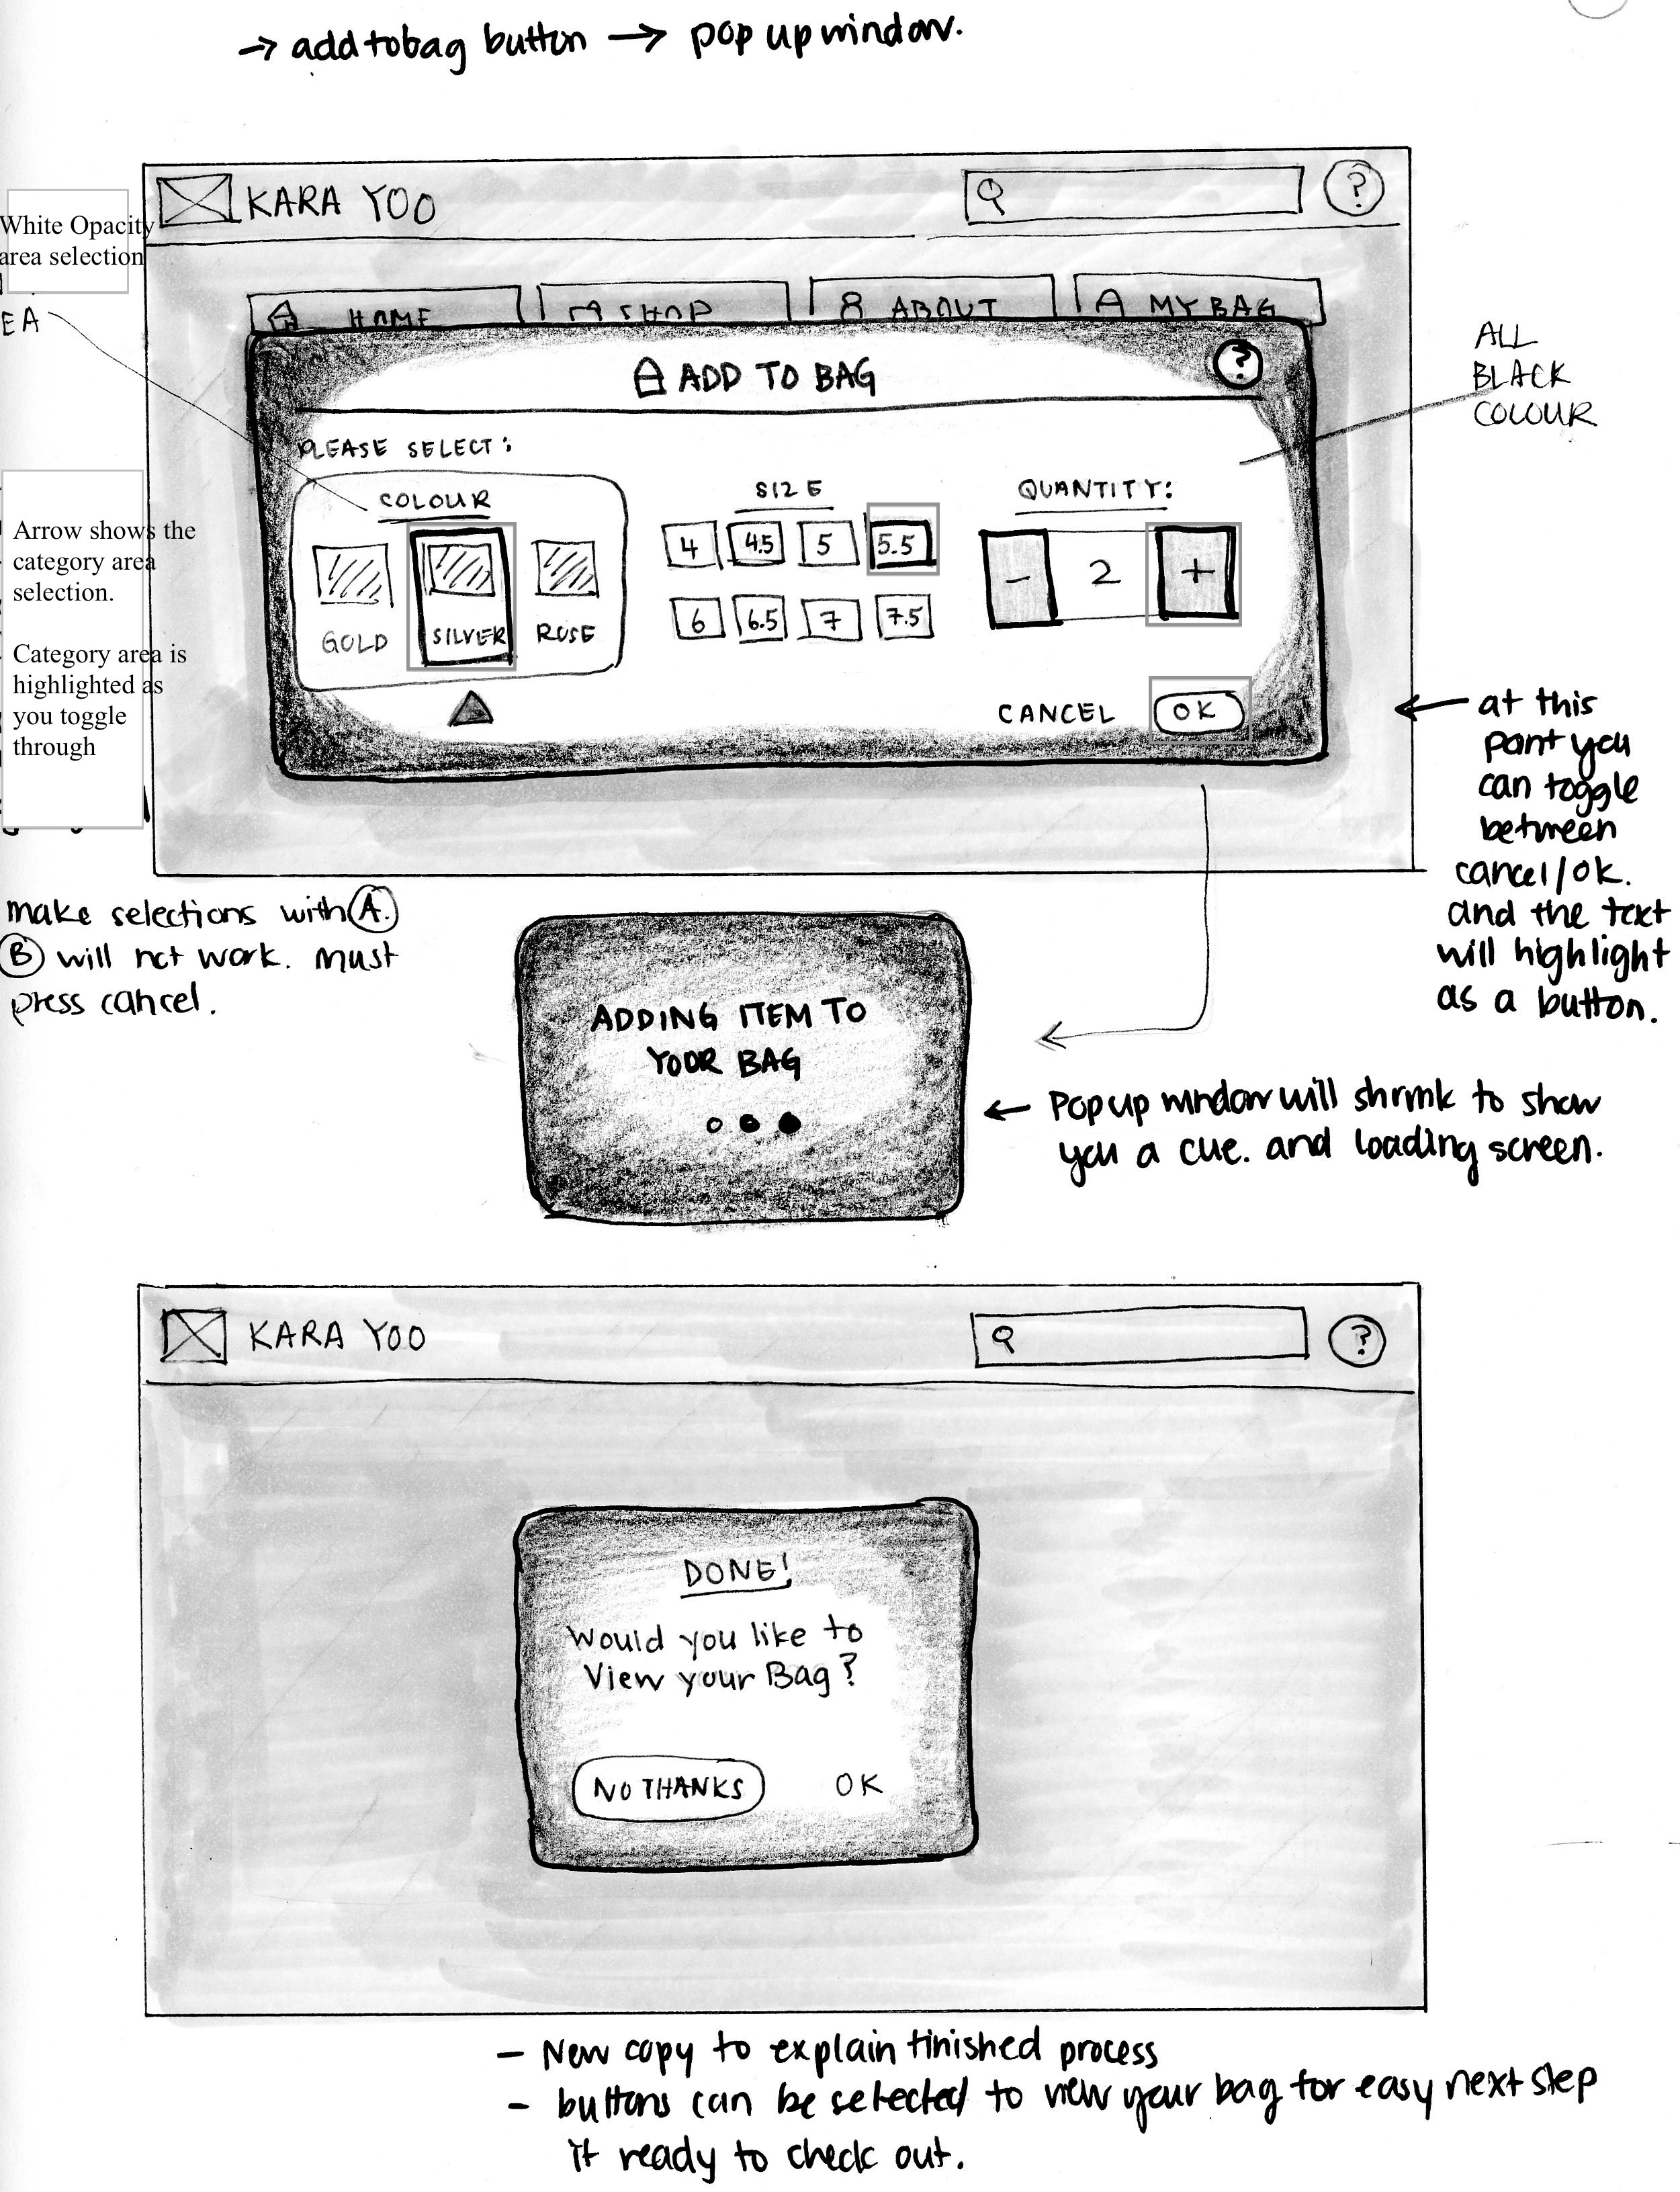 → add to bag button → pop up window.
KARA YOO
?
White Opacity
area selection
EA
HOME
SHOP
ABOUT
MY BAG
ADD TO BAG
?
ALL
BLACK
COLOUR
PLEASE SELECT:
COLOUR
GOLD
SILVER
ROSE
SIZE
4 4.5 5 5.5
6 6.5 7 7.5
QUANTITY:
- 2 +
CANCEL
OK
Arrow shows the
category area
selection.
Category area is
highlighted as
you toggle
through
← at this
point you
can toggle
between
cancel/ok.
and the text
will highlight
as a button.
make selections with A.
B will not work. must
press cancel.
ADDING ITEM TO
YOUR BAG
← Popup window will shrink to show
you a cue. and loading screen.
KARA YOO
?
DONE!
Would you like to
View your Bag?
NO THANKS
OK
- New copy to explain finished process
- buttons can be selected to view your bag for easy next step
if ready to check out.